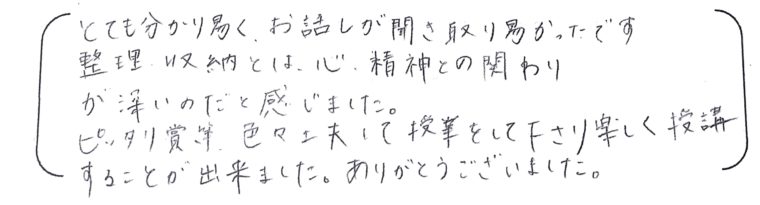 とても分かり易く、お話しが聞き取り易かったです
整理、収納とは、心、精神との関わり
が深いのだと感じました。
ピッタリ賞等、色々工夫して授業をして下さり楽しく授講
することが出来ました。ありがとうございました。